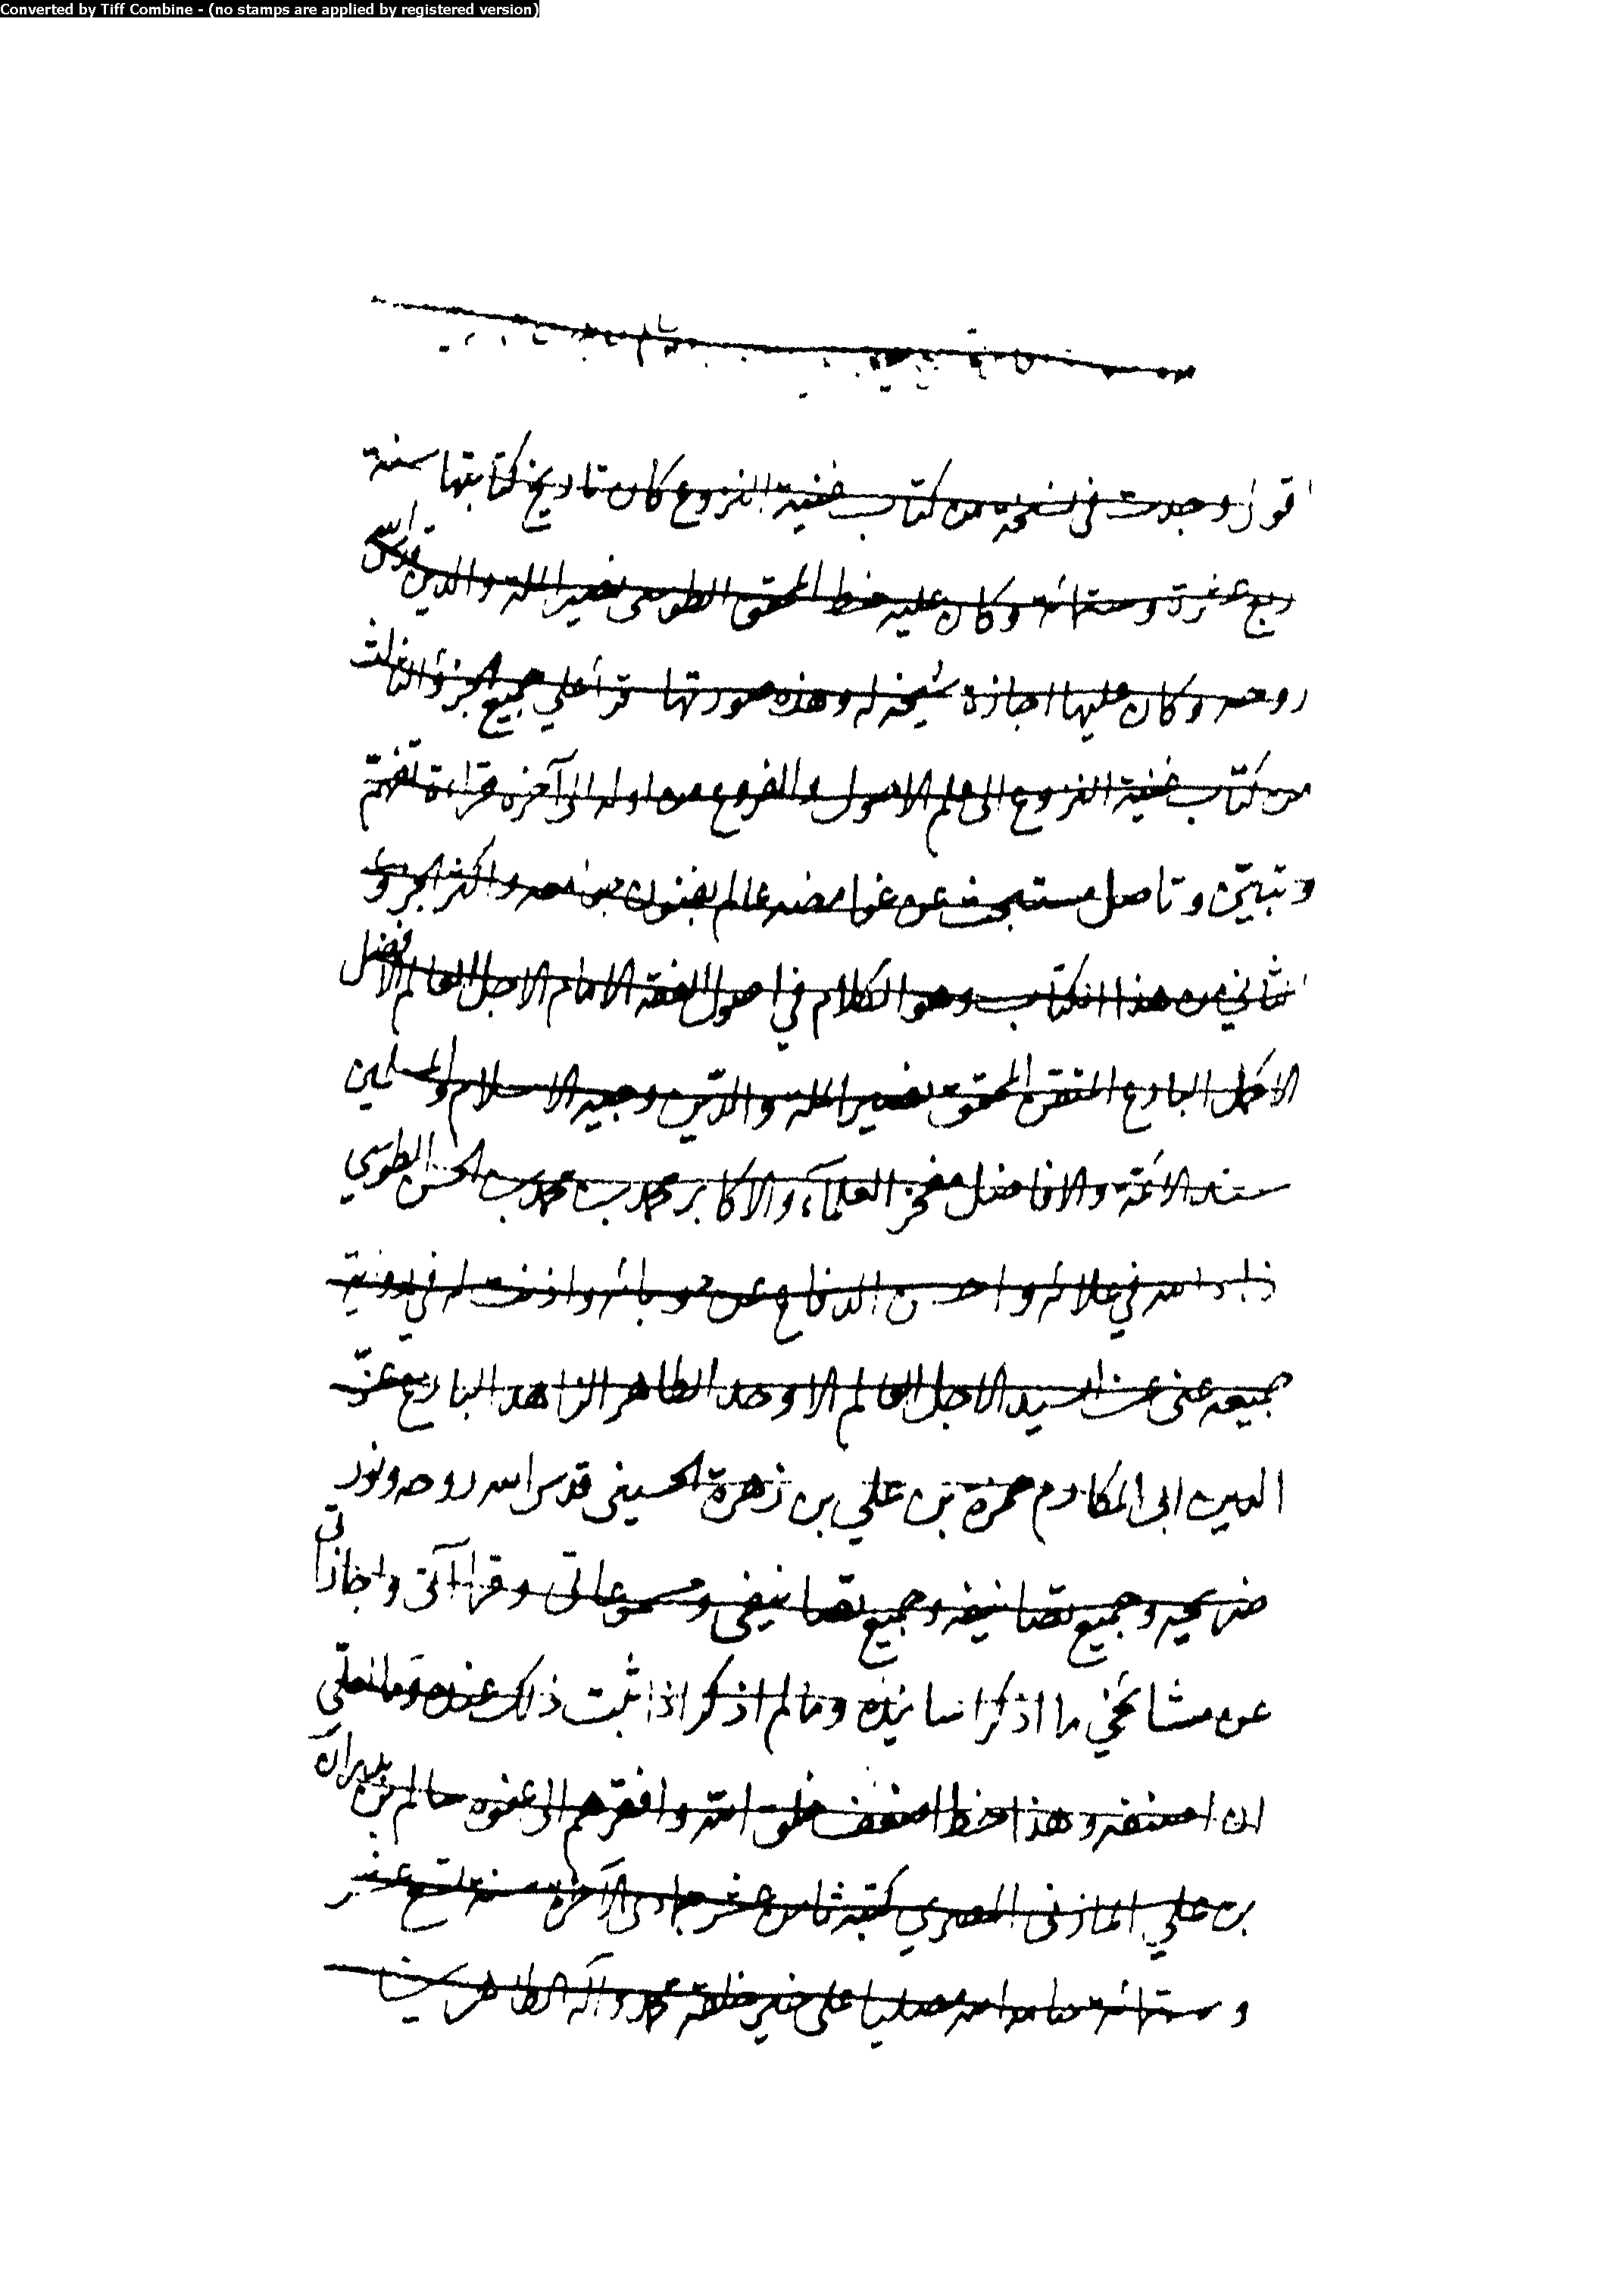 Converted by Tiff Combine - (no stamps are applied by registered version)
اقول وجدت في نسخة من كتاب غنية النزوع كان تاريخ كتابتها سنة
اربع عشرة وستمائة وكان عليه خط المحقق الطوسي نصير الملة والدين قدس الله
روحه وكان عليها اجازة شيخه له وهذه صورتها قرأ علي جميع الجزؤ الثالث
من كتاب غنية النزوع الى علم الاصول والفروع من اوله الى آخره قراءة تفهّم
وتبيّن وتامل مستبحث عن غوامضه عالم بفنون جوامعه واكثر الجزؤ
الثاني من هذا الكتاب وهو الكلام في اصول الفقه الامام الاجل العالم الافضل
الاكمل البارع المتقن المحقق نصير الملة والدّين وجيه الاسلام والمسلمين
سند الائمّة والافاضل مفخر العلمآء والاكابر محمد بن محمد بن الحسن الطوسي
زاد الله في علائه واحسن الدفاع عن حوبائه واذنت له في رواية
جميعه عني عن السيد الاجل العالم الاوحد الطاهر الزاهد البارع عزّ
الدين ابي المكارم حمزة بن علي بن زهرة الحسيني قدس الله روحه ونور
ضريحه وجميع تصانيفه وجميع تصانيفي ومسموعاتي وقراآتي واجازاتي
عن مشائخي ما اذكر اسانيده وما لم اذكر اذا ثبت ذلك عنده وما لعلّي
ان اصنفه وهذا خط اضعف خلق الله وافقرهم الى عفوه سالم بن بدران
بن علي المازني المصري كتبه ثامن عشر جمادى الآخرة سنة تسع عشر
وستمائة حامدا لله مصليا على خير خلقه محمد وآله الطاهرين